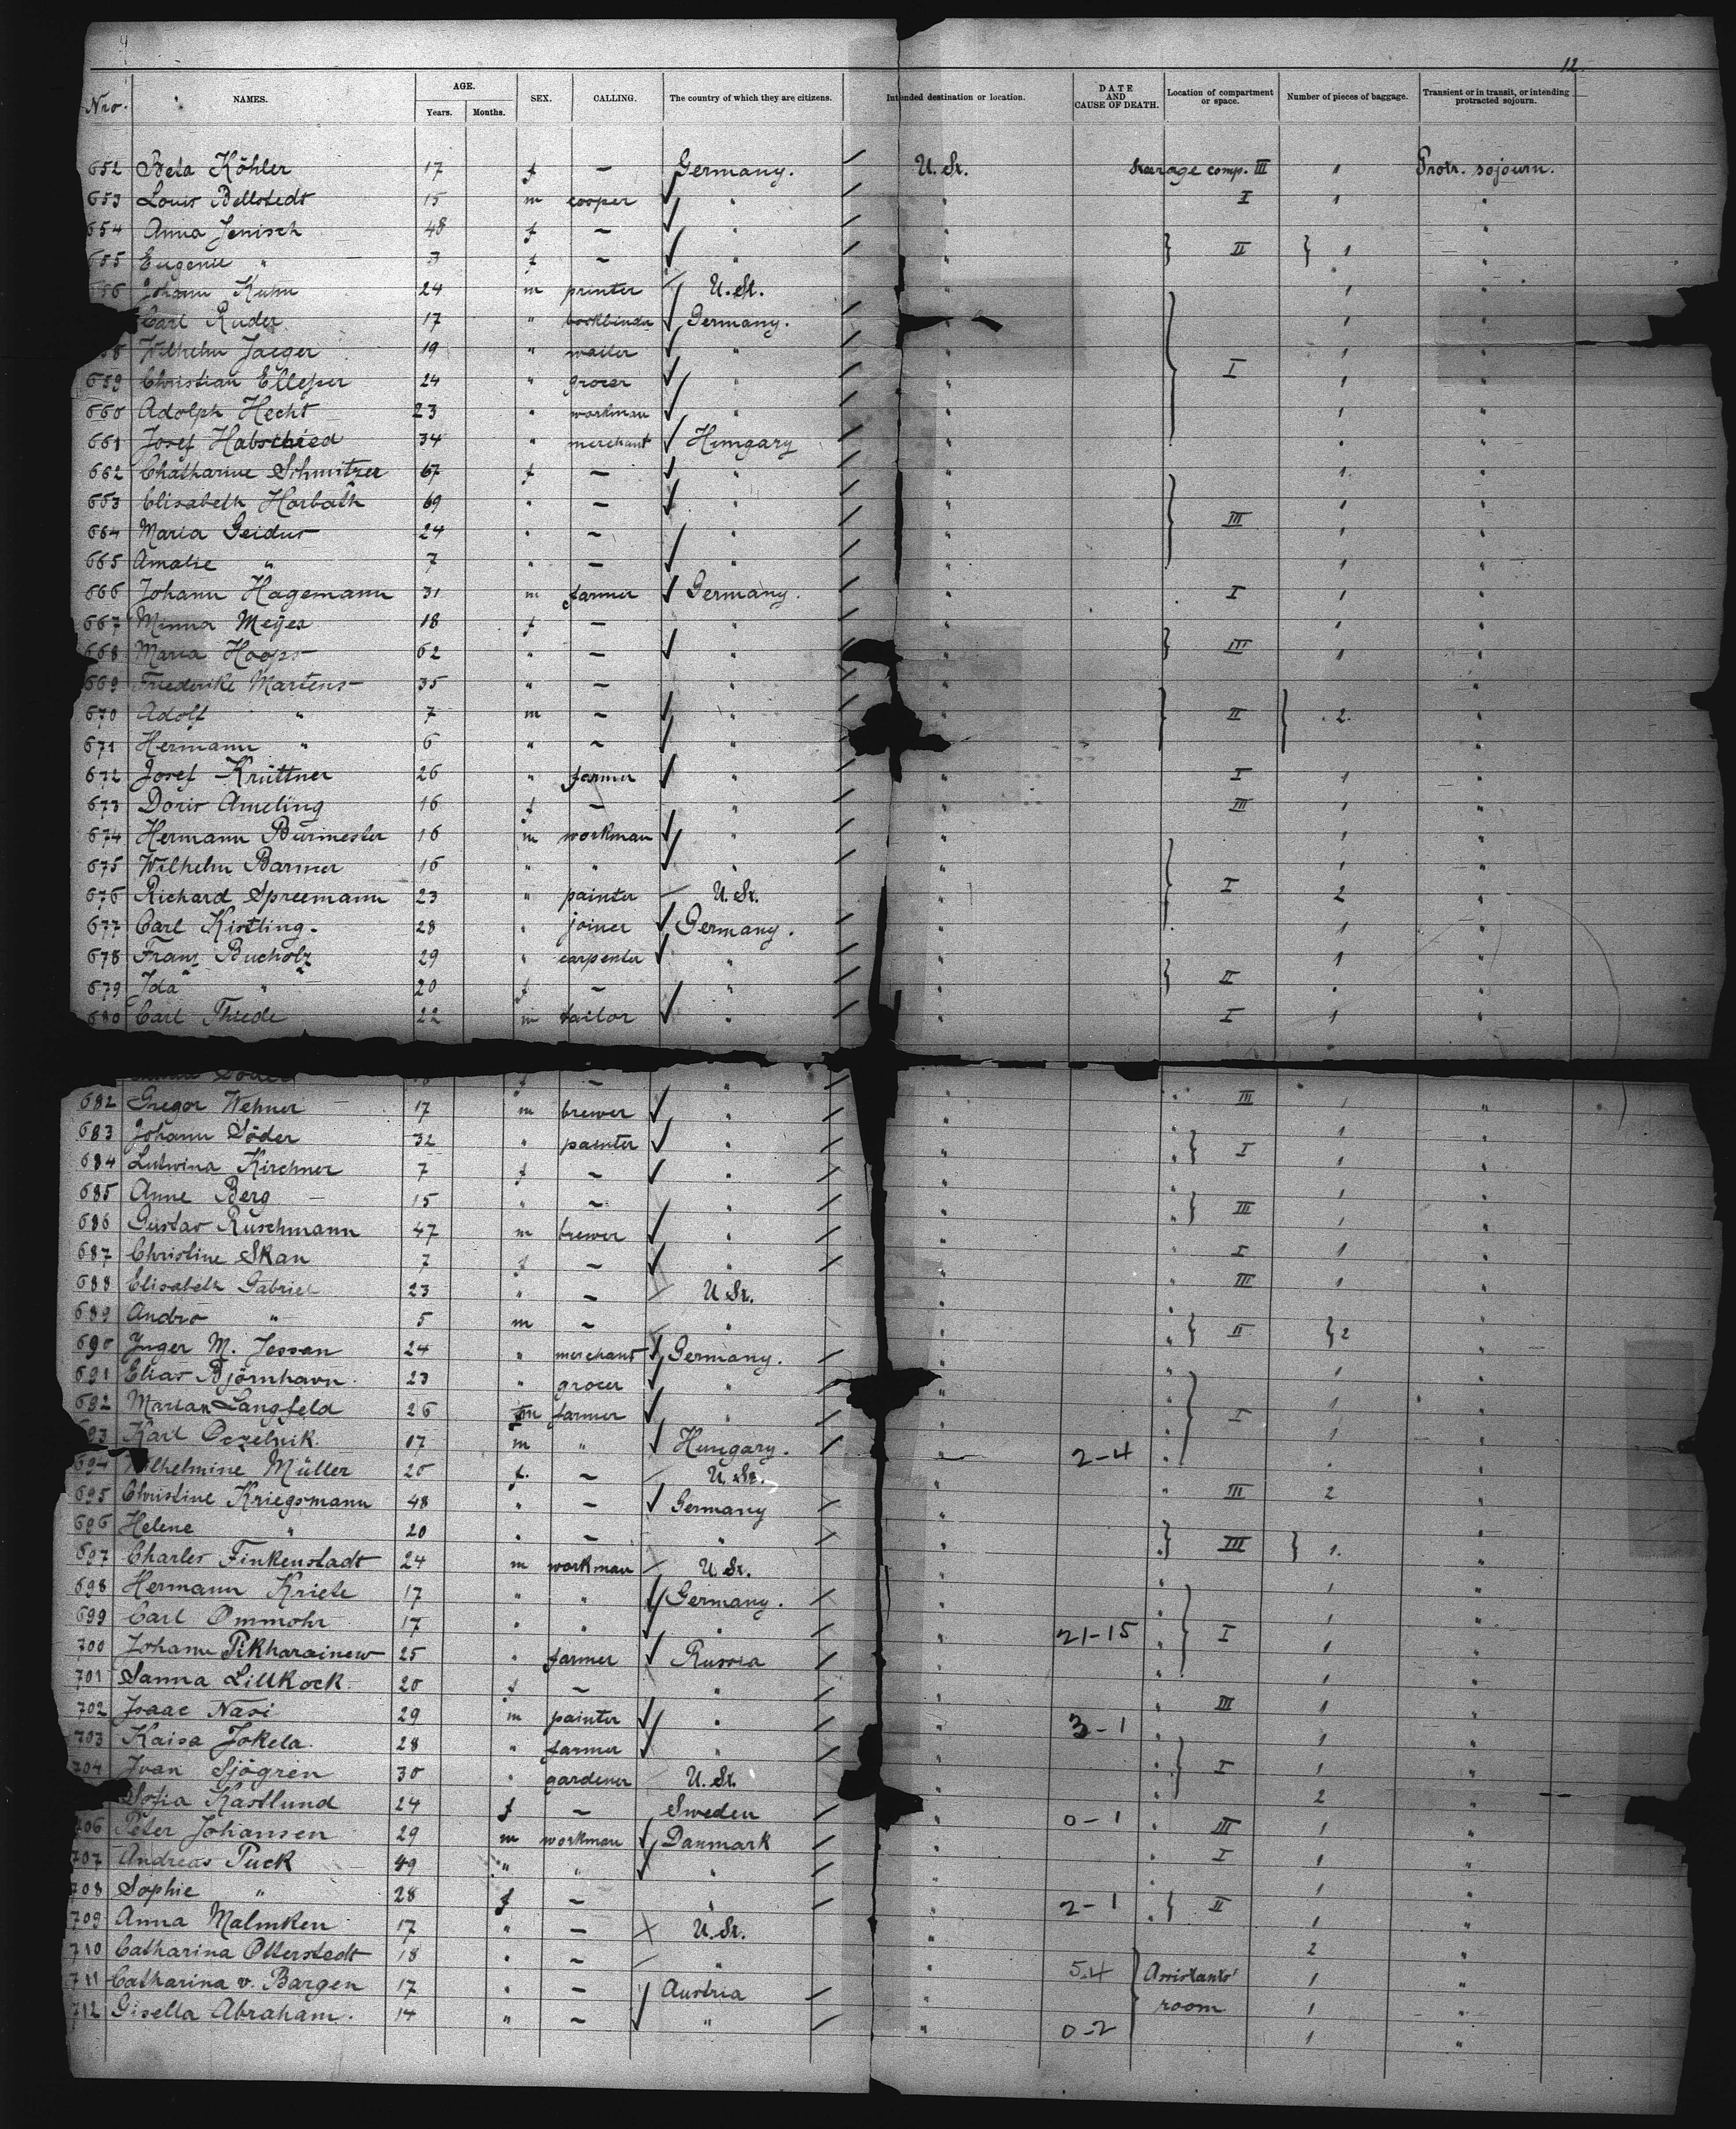 12.
Nro. NAMES. AGE. Years. Months. SEX. CALLING. The country of which they are citizens. Intended destination or location. DATE AND CAUSE OF DEATH. Location of compartment or space. Number of pieces of baggage. Transient or in transit, or intending protracted sojourn.
652 Beta Köhler 17 f — Germany. / U. St. Steerage comp. III 1 Protr. sojourn.
653 Louis Bellstedt 15 m cooper " / " I 1 "
654 Anna Jenisch 48 f — " / " "
655 Eugenie " 3 f — " / " II 1 "
656 Johann Kuhn 24 m printer U. St. " 1 "
Carl Ruder 17 " bookbinder Germany. / " 1 "
Wilhelm Jaeger 19 " waiter " / " 1 "
659 Christian 24 " grocer " / " I 1 "
660 Adolph Hecht 23 " workman " / " 1 "
661 Josef Habschied 34 " merchant Hungary / " "
662 Chatharine Schmitzer 67 f — " / " 1 "
663 Elisabeth Horbath 69 " — " / " 1 "
664 Maria Geidus 24 " — " / " III 1 "
665 Amalie " 7 " — " / " 1 "
666 Johann Hagemann 31 m farmer Germany. / " I 1 "
667 Minna Meÿer 18 f — " / " 1 "
668 Maria Hoops 62 " — " / " III 1 "
669 Friederike Martens 35 " — " / " "
670 Adolf " 7 m — " / " II 2 "
671 Hermann " 6 " — " / " "
672 Josef Krüttner 26 " farmer " / " I 1 "
673 Doris Ameling 16 f — " / " III 1 "
674 Hermann Burmester 16 m workman " / " 1 "
675 Wilhelm Barmer 16 " " " / " 1 "
676 Richard Spreemann 23 " painter U. St. " I 2 "
677 Carl Kistling. 28 " joiner Germany. / " 1 "
678 Franz Bucholz 29 " carpenter " / " 1 "
679 Ida " 20 f — " / " II "
680 Carl Thiede 22 m tailor " / " I 1 "
f — " / " III 1 "
682 Gregor Wehner 17 m brewer " / " 1 "
683 Johann Söder 32 " painter " / " I 1 "
684 Lutwina Kirchner 7 f — " / " 1 "
685 Anne Berg 15 " — " / " III 1 "
686 Gustav Ruschmann 47 m brewer " / " I 1 "
687 Christine Skau 7 f — " / " III 1 "
688 Elisabeth Gabriel 23 " — U. St. " "
689 Andro " 5 m — " " II 2 "
690 Inger M. Jessen 24 " merchant Germany. / " 1 "
691 Elias Björnhavn. 23 " grocer " / " 1 "
692 Marian Langfeld 26 m farmer " / " I 1 "
Karl 17 m " Hungary. / " 2-4 "
694 Wilhelmine Müller 20 f. — U. St. " III 2 "
695 Christine Kriegsmann 48 " — Germany / " "
696 Helene " 20 " — " / " III 1. "
697 Charles Finkenstadt 24 m workman U. St. " 1 "
698 Hermann Kriete 17 " " Germany. / " 1 "
699 Carl Ommohr 17 " " " / " 21-15 I 1 "
700 Johann 25 " farmer Russia / " 1 "
701 Sanna Lillkock. 20 f — " / " III 1 "
702 Isaac Nasi 29 m painter " / " 3-1 1 "
703 Kaisa Jokela. 28 " farmer " / " I 1 "
704 Ivan Sjögren 30 " gardener U. St. " 2 "
Sofia Kastlund 24 f — Sweden / " 0-1 III 1 "
706 Peter Johansen 29 m workman Danmark / " I 1 "
707 Andreas Puck 49 " " " / " 1 "
708 Sophie " 28 f — " / " 2-1 II 1 "
709 Anna Malmken 17 " — U. St. " 2 "
710 Catharina Otterstedt 18 " — " " 5-4 Assistants' 1 "
711 Catharina v. Bargen 17 " — Austria / " room 1 "
712 Gisella Abraham. 14 " — " / " 0-2 1 "